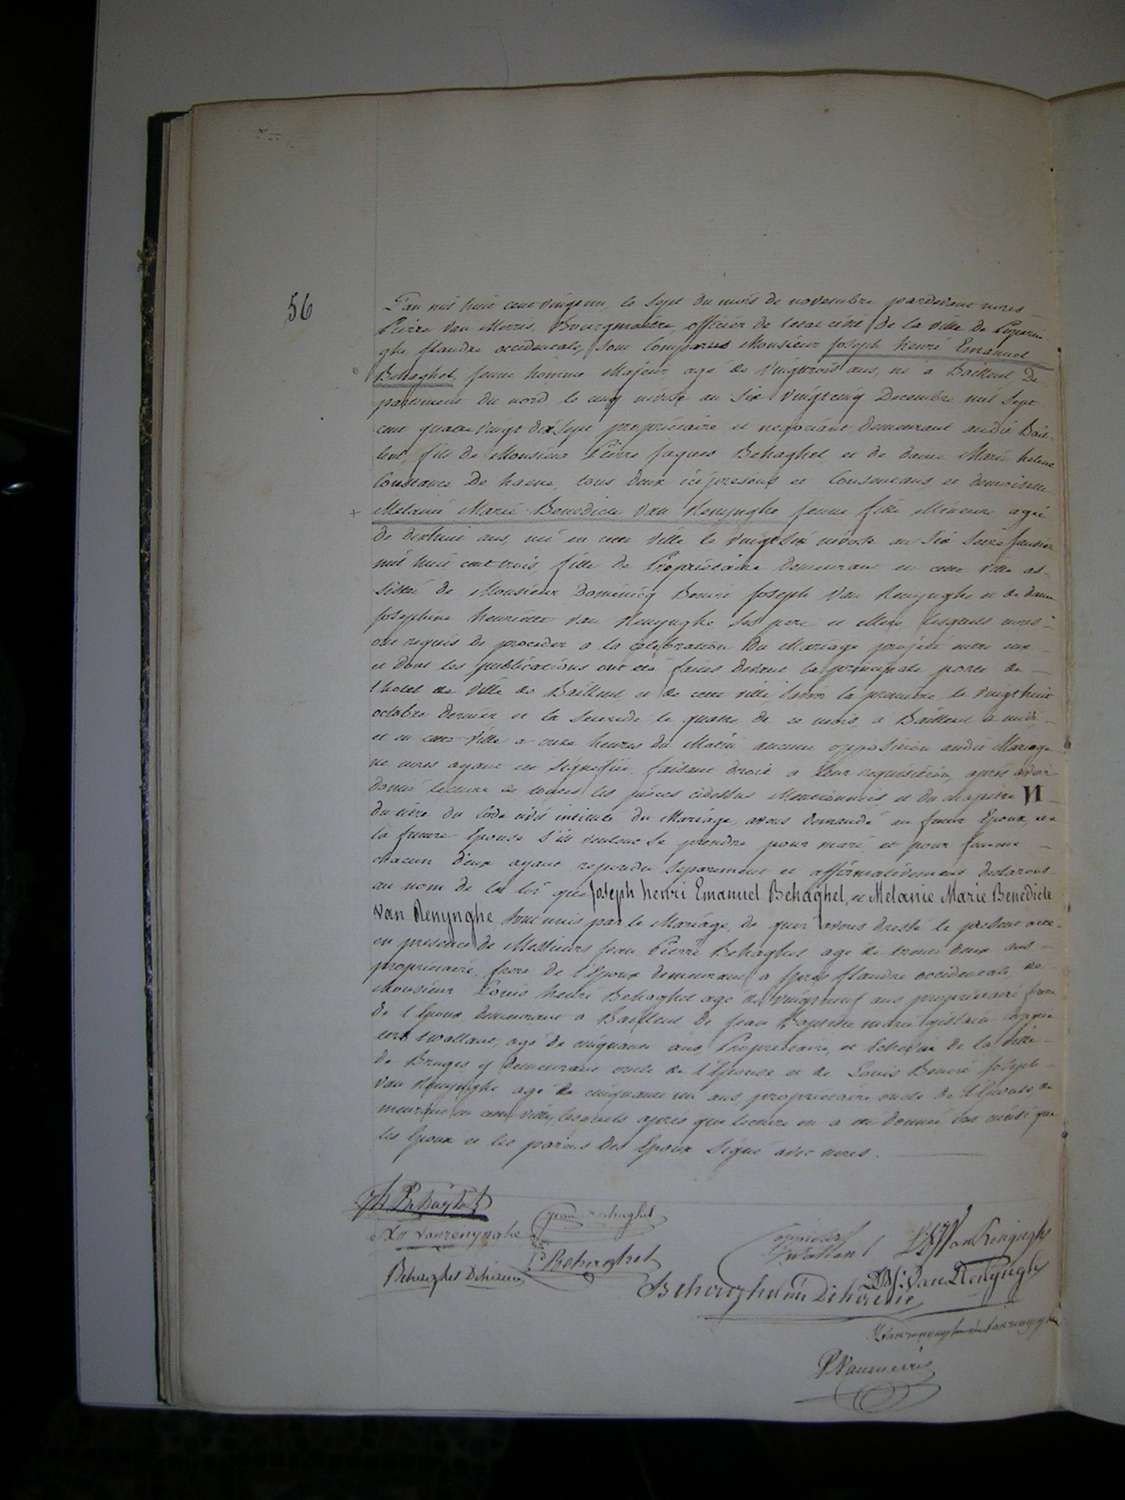 56
L'an mil huit cent vingt un, le sept du mois de novembre pardevant nous
Pierre Van Merris, Bourgmaitre, officier de l'état civil de la ville de Poperin-
ghe, flandre occidentale, sont comparus Monsieur Joseph henri Emanuel
Behaghel, jeune homme Majeur agé de vingtrois ans, né a Bailleul De
partement du nord le cinq nivose an Six vingtcinq Decembre mil Sept
cent quatre vingt dix sept propriétaire et negociant demeurant audit Bail-
leul, fils de Monsieur Pierre Jaques Behaghel et de dame Marie helene
Constance De haene, tous deux ici presens et Consentans et demoiselle
Melanie Marie Benedicte Van Renynghe jeune fille Mineure agée
de dixhuit ans, née en cette ville le vingt six nivose an Six Seize Janvier
mil huit cent trois, fille de Proprietaire demeurant en cette ville as-
sistée de Monsieur Dominicq Benoit Joseph Van Renynghe et de dame
Josephine henriette Van Renynghe Ses père et Mère lesquels nous
ont requis de proceder a la célébration du Mariage projetté entre eux
et dont les publications ont été faites devant la principale porte de
l'hotel de ville de Bailleul et de cette ville savoir la premiere le vingt huit
octobre dernier et la seconde le quatre de ce mois, a Bailleul a midi
et en cette ville a onze heures du Matin aucune opposition audit Mariage
ne nous ayant été signifiée, faisant droit a leur requisition, après avoir
donné lecture de toutes les pièces cidessus Mentionnées et du chapitre VI
du titre du Code civil intitulé du Mariage, avons demandé au futur Epoux, et a
la future Epouse s'ils veulent se prendre pour mari et pour femme
chacun d'eux ayant repondu separement et affirmativement declarons
au nom de la loi que Joseph henri Emanuel Behaghel, et Melanie Marie Benedicte
Van Renynghe sont unis par le Mariage, de quoi avons dressé le present acte
en presence de Messieurs Jean Pierre Behaghel agé de trente deux ans
propriétaire, frere de l'Epoux demeurant a Ypres flandre occidentale, de
Monsieur Louis henri Behaghel agé de vingtneuf ans propriétaire frere
de l'Epoux demeurant a Bailleul de Jean Baptiste marie
agé de cinquante ans Propriétaire, et de la ville
de Bruges y demeurant oncle de l'Epouse et de Louis Benoit Joseph
Van Renynghe agé de cinquante un ans propriétaire oncle de l'Epouse, de
meurant en cette ville, lesquels après que lecture en a été donnée ont ainsi que
les Epoux et les parens des Epoux signé avec nous.
Jh Behaghel
Jean Behaghel
Coppieters
Stwallant
LBJ Van Renynghe
M Vanrenynghe
L. Behaghel
DBJ: Van Renynghe
Behaghel Dehaene
Behaghel née Dehaene
Vanrenynghe née Vanrenynghe
P Vanmerris